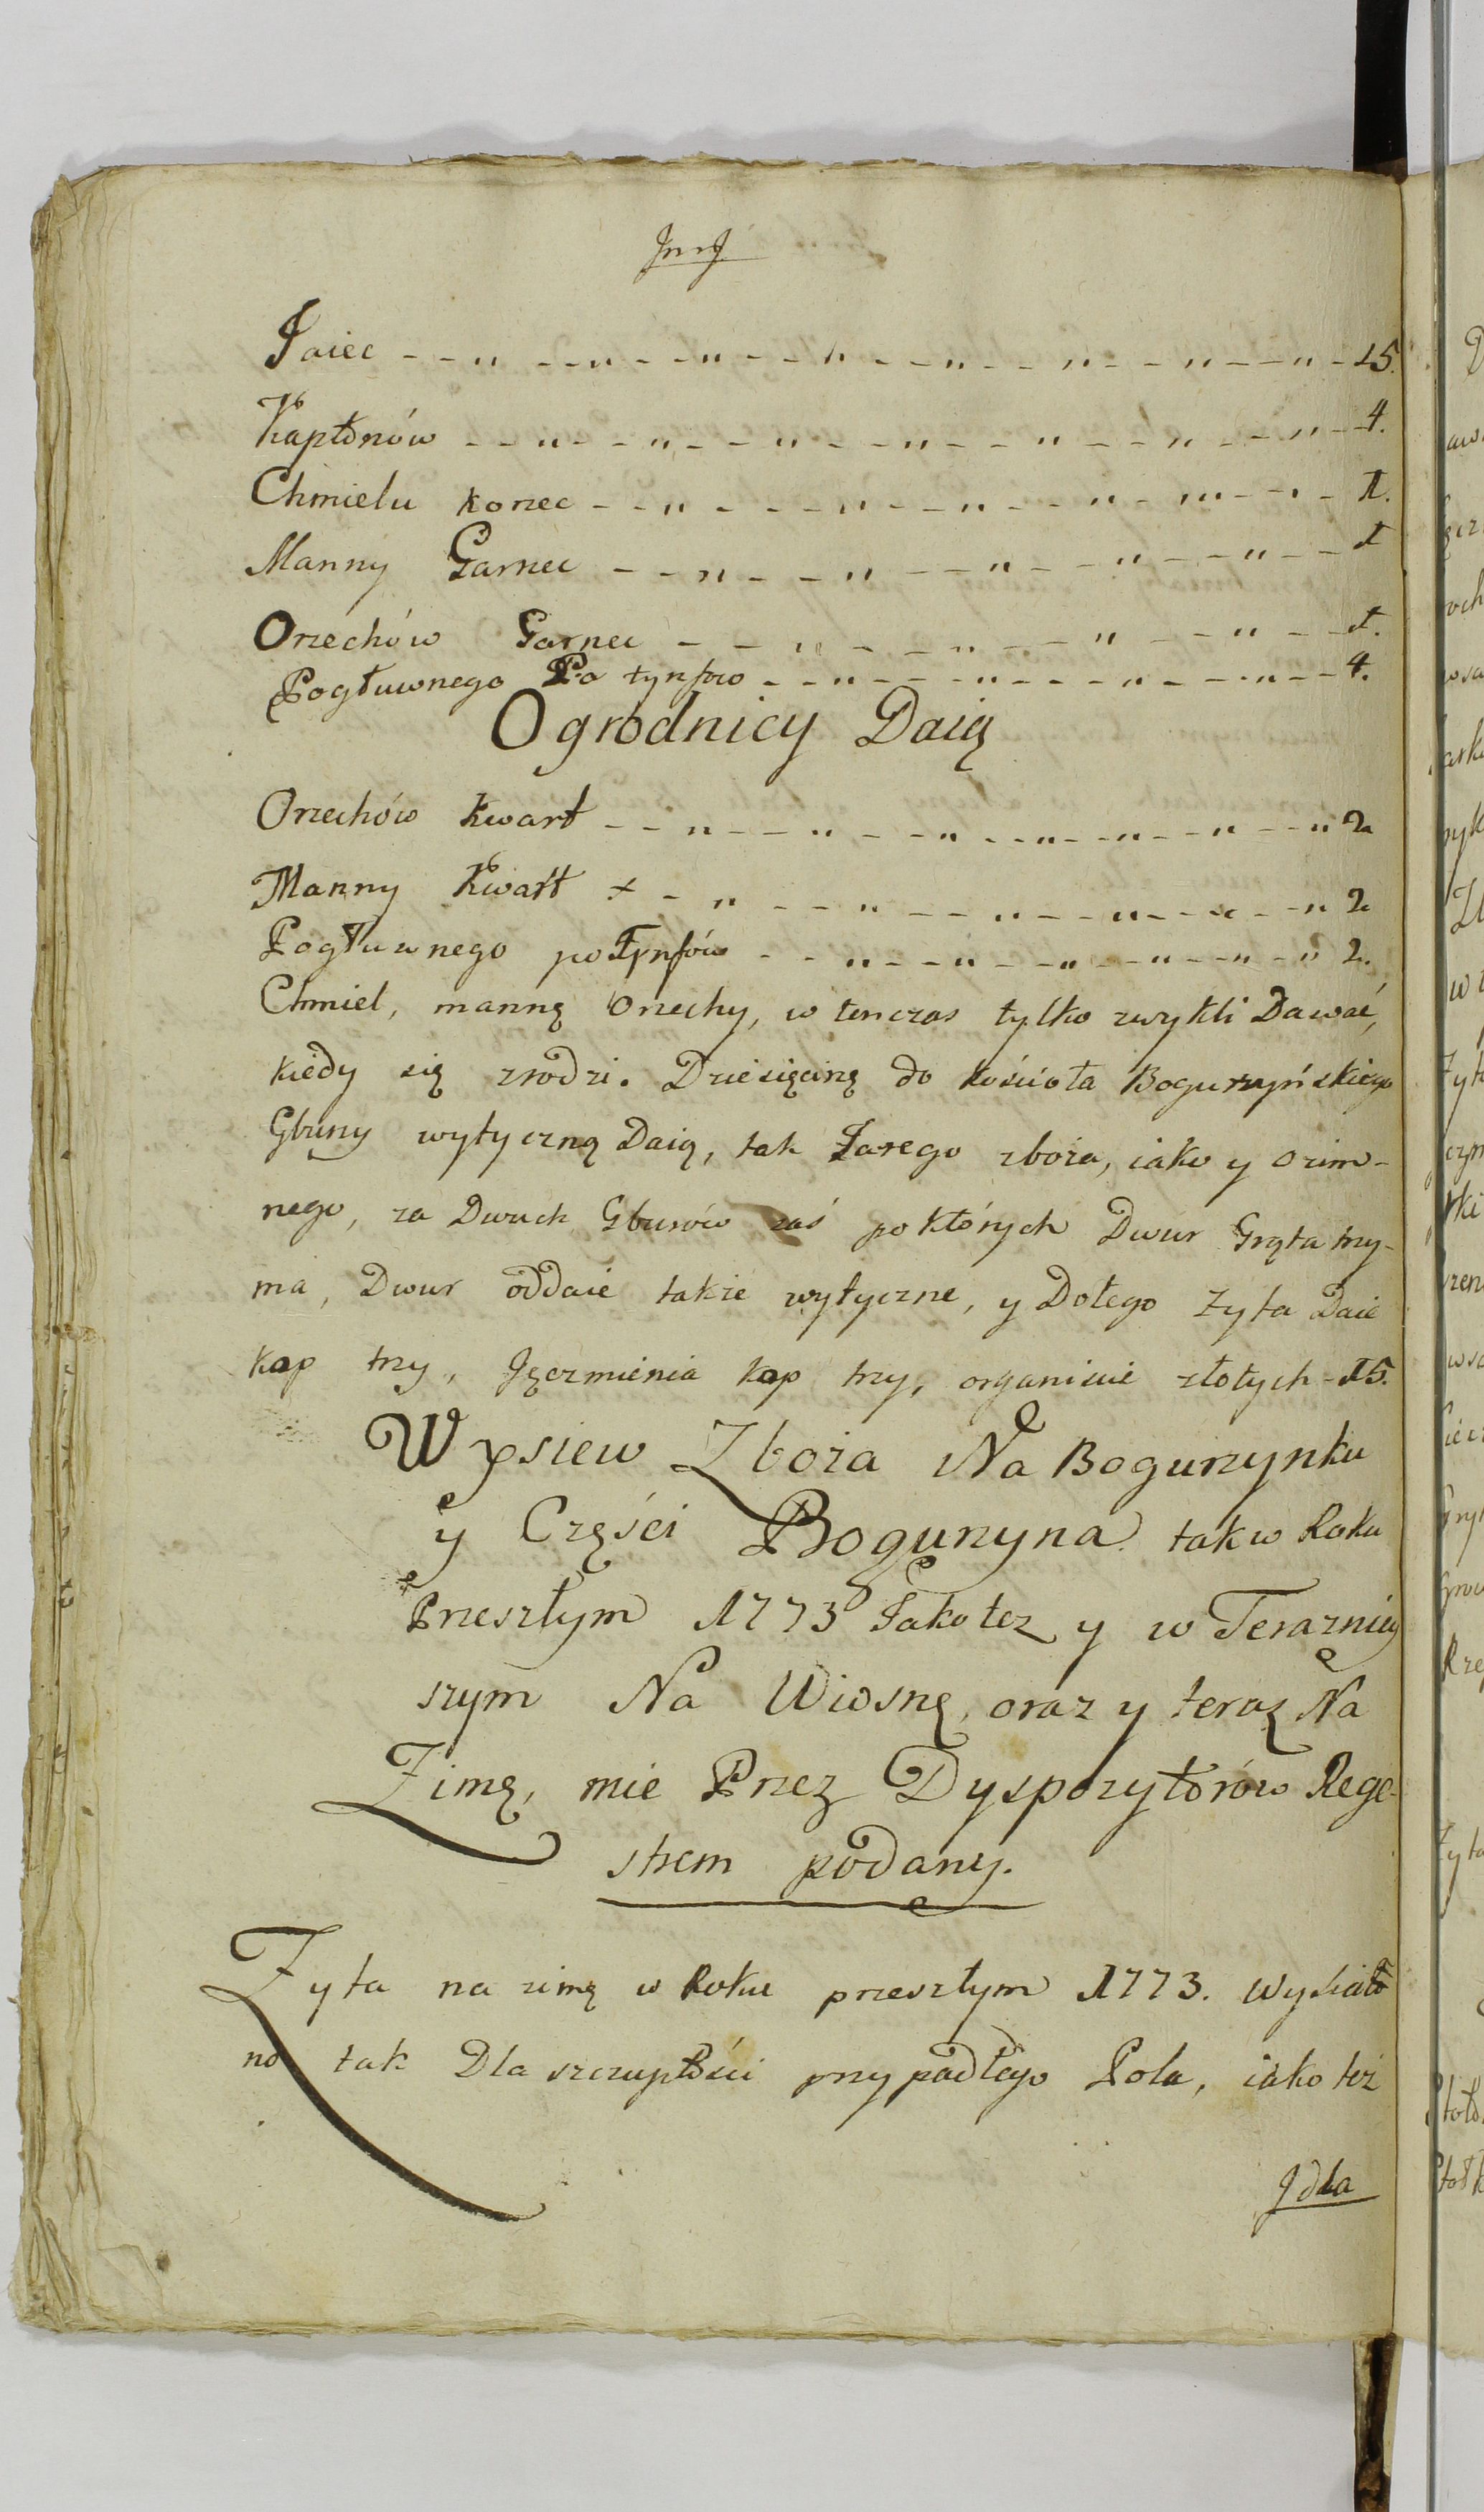 Jaiec - - „ - - „ - - „ - - „ - - „ - - „ - - „ - - „ - 15.
Kapłonów - - „ - - „ - - „ - - „ - - „ - - „ - - „ - 4.
Chmielu korzec - - „ - - - „ - - „ - - „ - „ - - „ - 1.
Manny Garnec - - „ - - „ - - „ - - „ - - „ - - 1
Orzechów Garnec - - „ - - „ - - „ - - „ - - 1.
Pogłuwnego Po tynfow - - „ - - „ - - „ - - „ - - 4.
Ogrodnicy Daią
Orzechów Kwart - - „ - - „ - - „ - - „ - - „ - - „ - - „ 2
Manny Kwart + - „ - - „ - - „ - - „ - - „ - - „ 2
Pogłuwnego po Tynfów - - „ - - „ - - „ - - „ - - „ - „ 2.
Chmiel, mannę Orzechy, w tenczas tylko zwykli Dawać,
kiedy się zrodzi. Dziesięcinę do kościoła Bogurzyńskiego
Gbury wytyczną Daią, tak Jarego zboża, iako y ozim-
nego, za Dwuch Gburów zaś po których Dwur Grąta trzy-
ma, Dwur oddaie także wytyczne, y Dotego żyta Daie
kop trzy, Jęczmienia kop trzy, organiście złotych - 15.
Wysiew Zboża Na Bogurzynku
y Części Bogurzyna tak w Roku
Przeszłym 1773 Jako tez y w Terazniey
szym Na Wiosnę, oraz y teraz Na
Zimę, mie Przez Dyspozytorów Rege-
strem podany.
Żyta na zimę w Roku przeszłym 1773. Wysiało
no tak Dla szczupłości przypadłego Pola, iako też
J dla